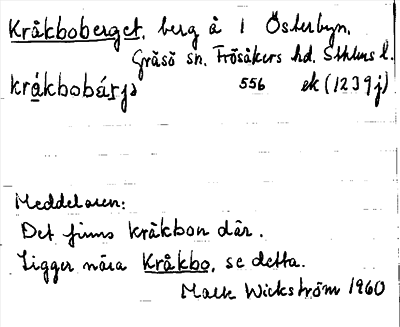 Kråkboberget, berg å 1 Österbyn,
Gräsö sn. Frösåkers hd. Sthlms l.
kråkbobárjə 556 ek (1239j)
Meddelaren:
Det finns kråkbon där.
Ligger nära Kråkbo, se detta.
MaLk Wickström 1960